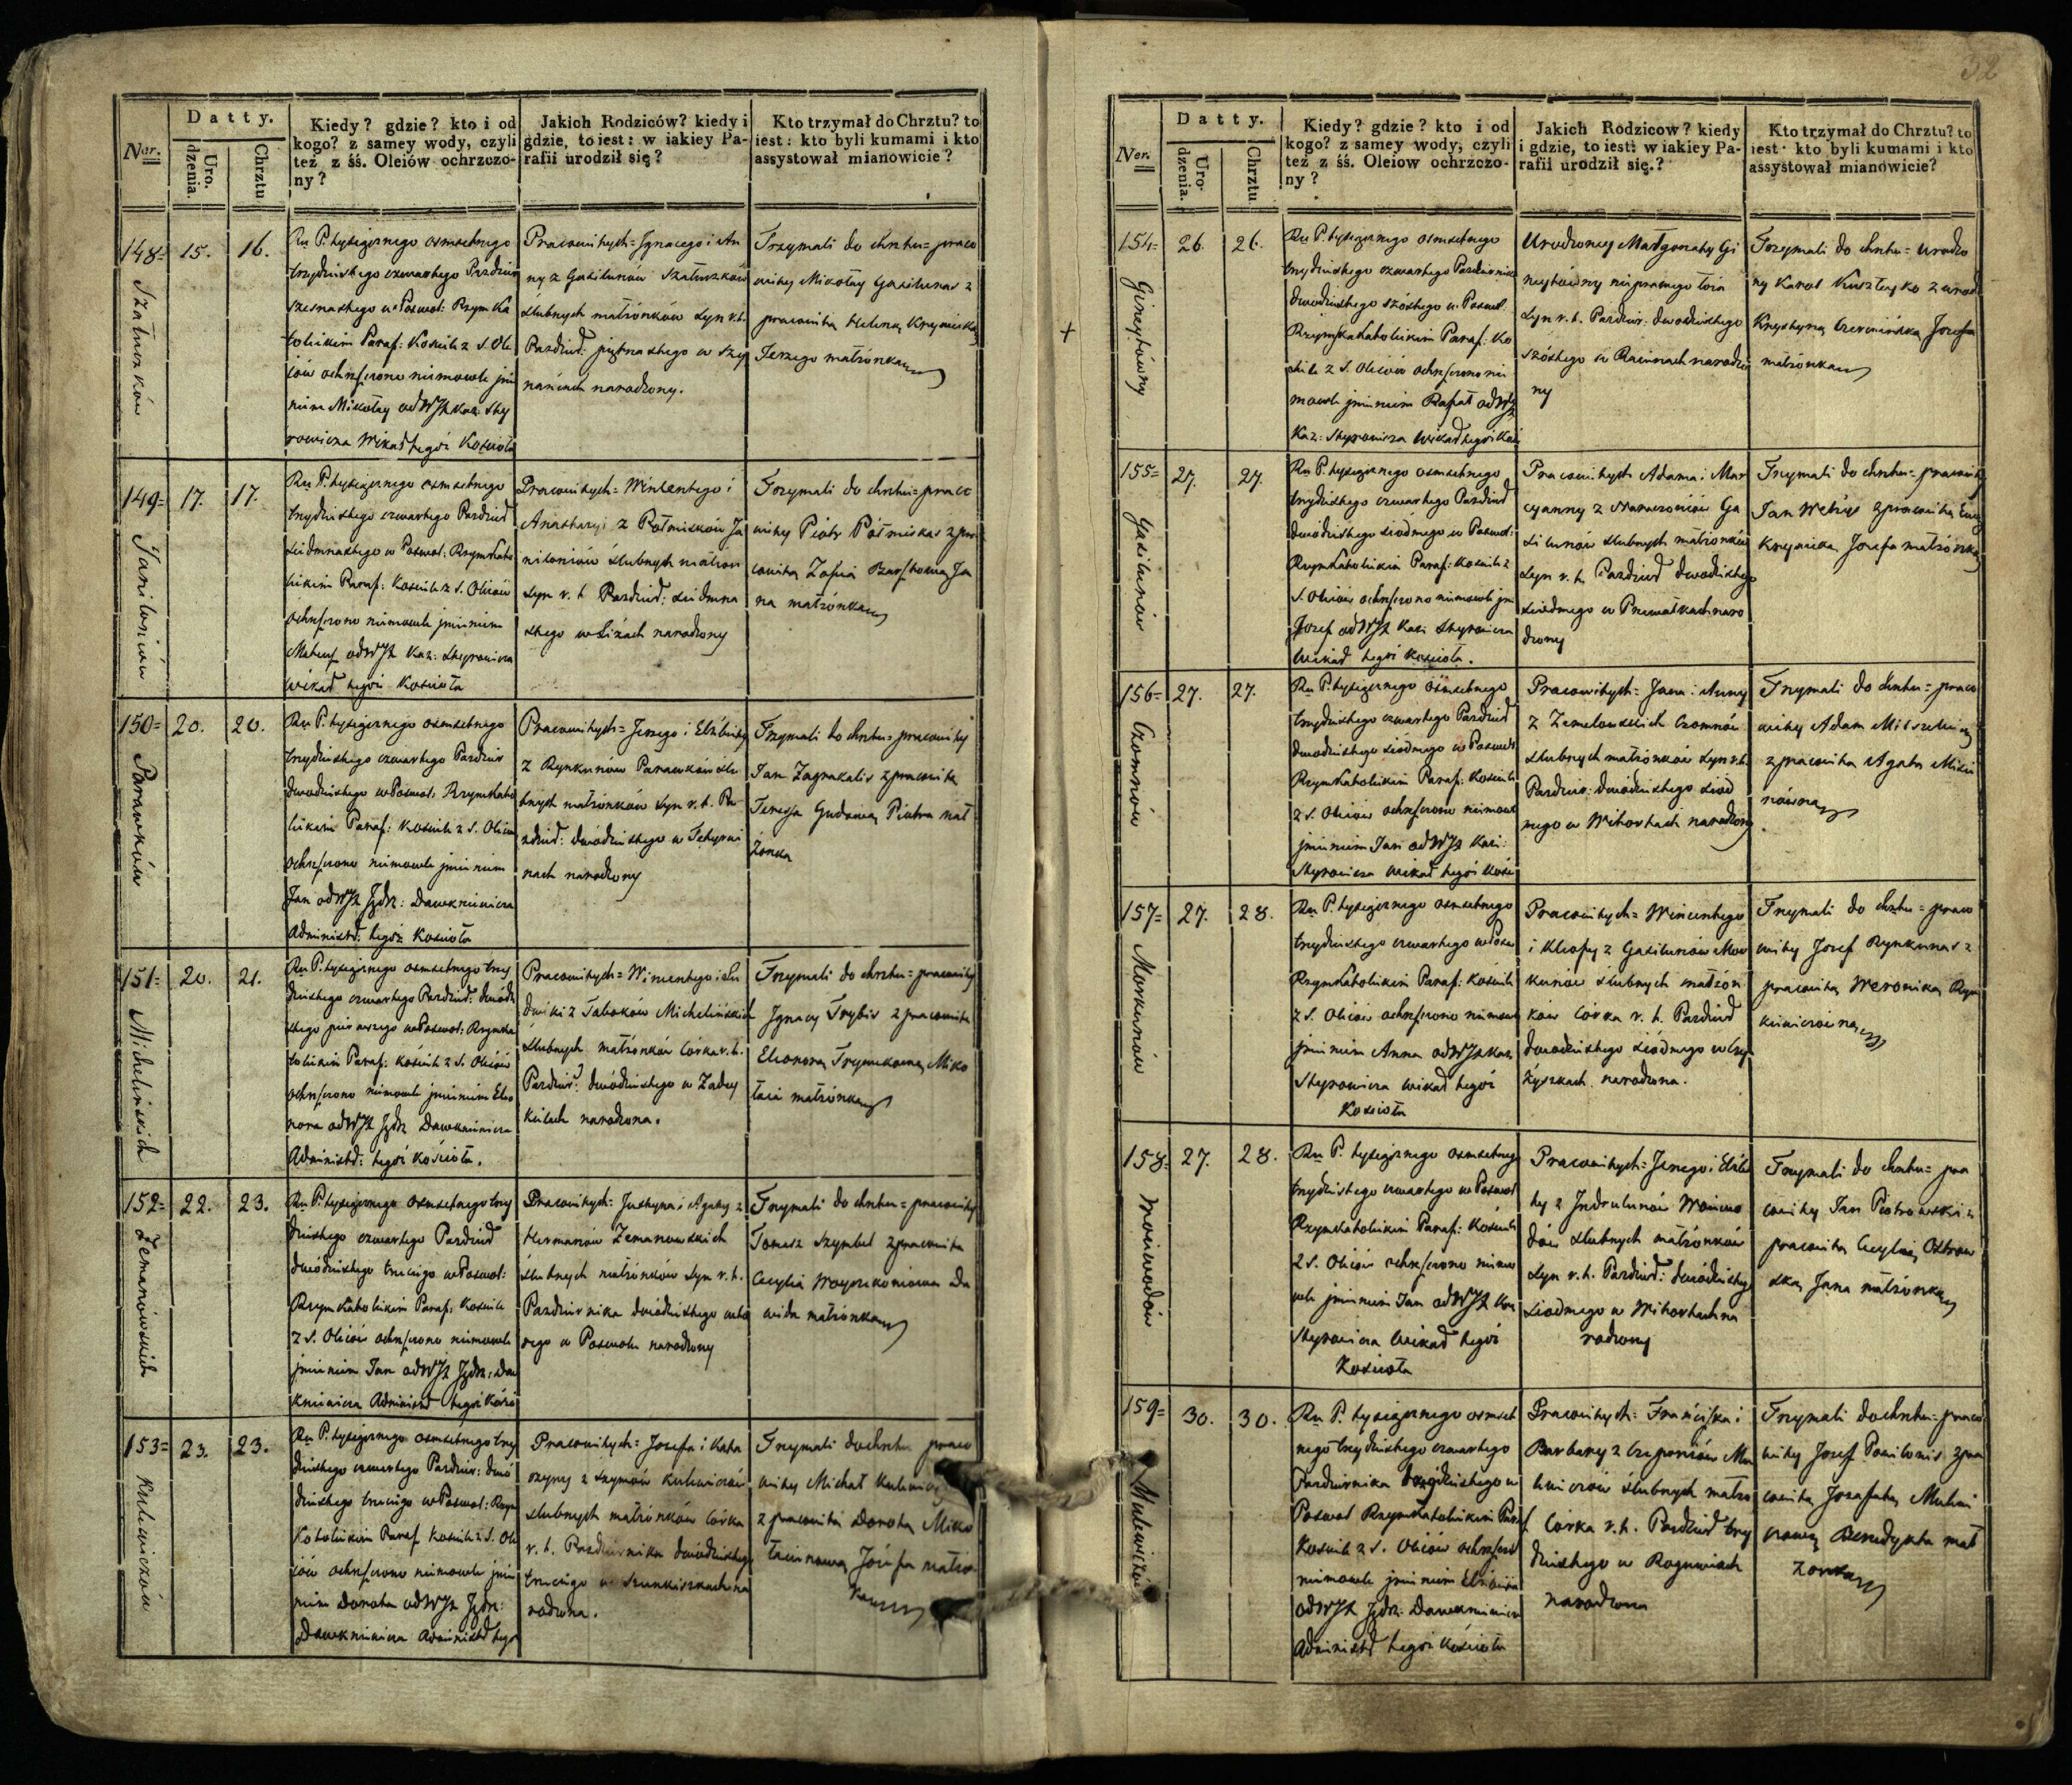 32
Datty.
Ner.
Uro-
dzenia.
Chrztu
Kiedy? gdzie? kto i od
kogo? z samey wody, czyli
też z śś. Oleiów ochrzczo-
ny?
Jakich Rodziców? kiedy i
gdzie, to iest: w iakiey Pa-
rafii urodził się?
Kto trzymał do Chrztu? to
iest: kto byli kumami i kto
assystował mianowicie?
148 15. 16.
Szatunków
Ru P. tysięcznego osmsetnego
trzydziestego czwartego Pazdzier
szesnastego w Poswol: Rzym Ka
tolickim Paraf: Kosciele z S. Ole
iów ochrzszczono niemowle jmi
niem Mikołay od WJX Kaz: Sty
rowicza Wikar tegoż Kościoła
Pracowitych = Jgnacego i An
ny z Gasilunów
ślubnych małżonków syn r. t.
Pazdzier: piętnastego w
nańcach narodzony.
Trzymali do chrztu = praco
wity Mikołay Gasilunas z
pracowitą Heleną
Jerzego małżonką
149 17. 17.
Janiloniów
Ru P. tysięcznego osmsetnego
trzydziestego czwartego Pazdzier
siedmnastego w Poswol: Rzymkato
lickim Paraf: Kosciele z S. Oleiów
ochrzszczono niemowle jmieniem
Mateusz od WJX Kaz: Styrowicza
wikar tegoż Kościoła
Pracowitych = Wincentego i
Anastazyi z Połmisków Ja
niloniów ślubnych małżon
syn r. t. Pazdzier: siedmna
stego w narodzony
Trzymali do chrztu = praco
wity Piotr Połmiskas z pra
cowitą Zofią Ja
na małżonką
150 20. 20.
Parawków
Ru P. tysięcznego osmsetnego
trzydziestego czwartego Pazdzier
dwudziestego w Poswol: Rzymkato
lickim Paraf: Kosciele z S. Oleiów
ochrzszczono niemowle jmieniem
Jan od WJX Jędrz: Dawkniewicza
Administr: tegoż Kościoła
Pracowitych = Jerzego i Elżbiety
z Rynkunów Parawków ślu
bnych małżonków syn r. t. Pa
zdzier: dwudziestego w
nach narodzony
Trzymali do chrztu = pracowity
Jan Zagrakalis z pracowitą
Teressą Gudową Piotra mał
żonką
151 20. 21.
Michelińskich
Ru P. tysięcznego osmsetnego trzy
dziestego czwartego Pazdzier: dwudz
stego pierwszego w Poswol: Rzymka
tolickim Paraf: kościele z S. Oleiów
ochrzszczono niemowle jmieniem Eleo
nora od WJX Jędrz Dawkniewicza
Administr: tegoż kościoła.
Pracowitych = Wincentego i Lu
dwiki z Taboków Michelińskich
ślubnych małżonków córka r. t.
Pazdzier: dwudziestego w Zadey
kielach narodzona.
Trzymali do chrztu = pracowity
Jgnacy Trybis z pracowitą
Eleonorą Miko
łaia małżonką
152 22. 23.
Zemanowskich
Ru P. tysięcznego osmsetnego trzy
dziestego czwartego Pazdzier
dwudziestego trzeciego w Poswol:
Rzymkatolickim Paraf: Kosciele
z S. Oleiów ochrzszczono niemowle
jmieniem Jan od WJX Jędrz: Daw
kniewicza Administr tegoż Kości
Pracowitych = Justyna i Agaty z
Hermanów Zemanowskich
ślubnych małżonków syn r. t.
Pazdziernika dwudziestego wto
rego w Poswolu narodzony
Trzymali do chrztu = pracowity
Tomasz Szymbel z pracowitą
Cecylią Da
wida małżonką
153 23. 23.
Kulewiczów
Ru P. tysięcznego osmsetnego trzy
dziestego czwartego Pazdzier: dwu
dziestego trzeciego w Poswol: Rzym
Katolickim Paraf Kosciele z S. Ole
iów ochrzszczono niemowle jmie
niem Dorota od WJX Jędrz:
Dawkniewicza Administr tego
Pracowitych = Jozefa i Kata
rzyny z Szymów Kulewiczów
ślubnych małżonków córka
r. t. Pazdziernika dwudziestego
trzeciego w Szunkiszkach na
rodzona.
Trzymali do chrztu praco
wity Michał Kulewicz
z pracowitą Dorotą Miko
łaiunową Józefa małżon
ką
Datty.
Ner.
Uro-
dzenia.
Chrztu
Kiedy? gdzie? kto i od
kogo? z samey wody, czyli
też z śś. Oleiow ochrzczo-
ny?
Jakich Rodzicow? kiedy
i gdzie, to iest: w iakiey Pa-
rafii urodził się.?
Kto trzymał do Chrztu? to
iest: kto byli kumami i kto
assystował mianowicie?
+
154 26. 26.
Gineytówny
Ru P. tysięcznego osmsetnego
trzydziestego czwartego Pazdziernika
dwudziestego szóstego w Poswol:
Rzymskokatolickim Paraf: Ko
ściele z S. Oleiów ochrzszczono nie
mowle jmieniem Rafał od WJX
Kaz: Styrowicza Wikar tegoż Kości
Urodzoney Małgorzaty Gi
neytówny nieprawego łoża
syn r. t. Pazdzier: dwudziestego
szóstego w narodzo
ny
Trzymali do chrztu = urodzo
ny Karol Kuszleyko z urodz
Krystyną Czerwińską Jozefa
małżonką
155 27. 27.
Gasilunów
Ru P. tysięcznego osmsetnego
trzydziestego czwartego Pazdzier
dwudziestego siódmego w Poswol:
Rzymkatolickim Paraf: Kosciele z
S. Oleiów ochrzszczono niemowle jm
Jozef od WJX Kazi Styrowicza
Wikar tegoż Kościoła.
Pracowitych Adama i Mar
cyanny z Ga
silunów ślubnych małżonków
syn r. t. Pazdzier dwudziestego
siodmego w naro
dzony
Trzymali do chrztu = pracowity
Jan z pracowitą Ewą
Jozefa małżonką
156 27. 27.
Czomnów
Ru P. tysięcznego osmsetnego
trzydziestego czwartego Pazdzier
dwudziestego siódmego w Poswol
Rzymkatolickim Paraf: Kosciele
z S. Oleiów ochrzszczono niemowle
jmieniem Jan od WJX Kazi:
Styrowicza Wikar tegoż Kości
Pracowitych = Jana i Anny
z Zemelowskich Czomnów
ślubnych małżonków syn r. t.
Pazdzier: dwudziestego siód
mego w Witortach narodzony
Trzymali do chrztu = praco
wity Adam
z pracowitą Agatą
nówną
157 27. 28.
Morkunów
Ru P. tysięcznego osmsetnego
trzydziestego czwartego w Posw
Rzymkatolickim Paraf: Kosciele
z S. Oleiów ochrzszczono niemow
jmieniem Anna od WJX Kaz
Styrowicza wikar tegoż
Kościoła
Pracowitych = Wincentego
i Kleofy z Gasilunów Mor
kunów ślubnych małżon
ków córka r. t. Pazdzier
dwudziestego siódmego w
żyszkach narodzona.
Trzymali do chrztu = praco
wity Jozef Rynkunas z
pracowitą Weroniką Ryn
kiewiczówną
158 27. 28.
Woiewodów
Ru P. tysięcznego osmsetnego
trzydziestego czwartego w Poswol
Rzymkatolickim Paraf: Kosciele
z S. Oleiów ochrzszczono niemo
wle jmieniem Jan od WJX Kaz
Styrowicza Wikar tegoż
Kościoła
Pracowitych = Jerzego i Elżbie
ty z Jndrulunów Woiewo
dów ślubnych małżonków
syn r. t. Pazdzier: dwudziestego
siodmego w Witortach na
rodzony
Trzymali do chrztu = pra
cowity Jan Piotrowski z
pracowitą Cecylią Ostrow
ską Jana małżonką
159 30. 30.
Mulewiczów
Ru P. tysięcznego osmset
nego trzydziestego czwartego
Pazdziernika trzydziestego w
Poswol Rzymkatolickim Paraf
Kosciele z S. Oleiów ochrzszcz
niemowle jmieniem Elżbieta
od WJX Jędrz: Dawkniewicza
Administr tegoż kościoła
Pracowitych = Franciszka i
Barbary z Czeponiów Mu
lewiczów ślubnych małżo
córka r. t. Pazdzier trzy
dziestego w Roguwiach
narodzona
Trzymali do chrztu = praco
wity Jozef Powilonis z pra
cowitą Jozafatą Mulewi
czową Benedykta mał
żonką